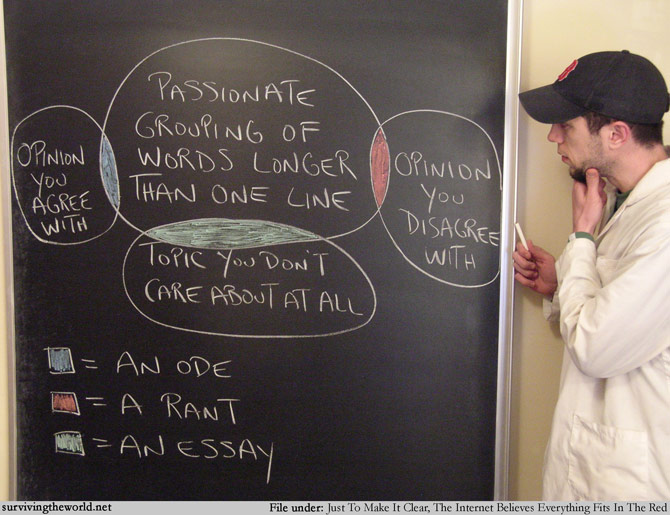 PASSIONATE
GROUPING OF
WORDS LONGER
THAN ONE LINE
OPINION
YOU
AGREE
WITH
OPINION
YOU
DISAGREE
WITH
TOPIC YOU DON'T
CARE ABOUT AT ALL
= AN ODE
= A RANT
= AN ESSAY
survivingtheworld.net
File under: Just To Make It Clear, The Internet Believes Everything Fits In The Red